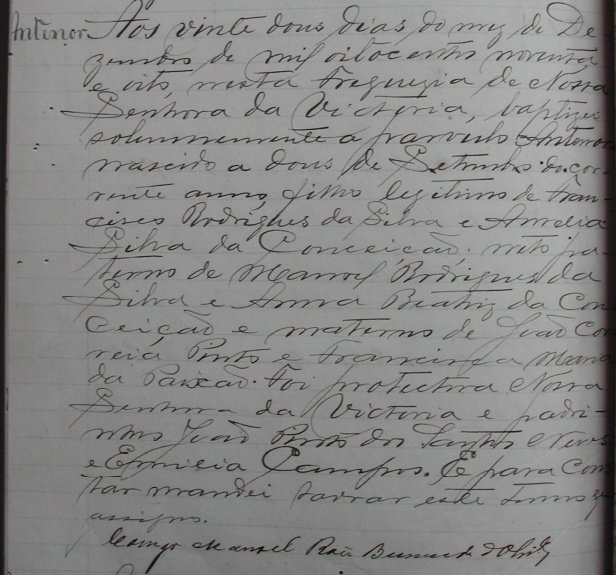 Antenor Aos vinte dous dias do mez de De-
zembro de mil oitocentos noventa
e oito, nesta Freguezia de Nossa
Senhora da Victoria, baptizei
solemnemente a parvulo Antenor
nascido a dous de Setembro do cor-
rente anno, filho legitimo de Fran-
cisco Rodrigues da Silva e Amelia
Silva da Conceição, neto pa-
terno de Manoel Rodrigues da
Silva e Anna Beatriz da Con
ceição e materno de João Cor
reia Pinto e Francisca Maria
da Paixão. Foi protectora Nossa
Senhora da Victoria e padri-
nhos João Pinto dos Santos
e Emilia Campos. E para cons
tar mandei lavrar este termo q
assigno.
Conego Manoel